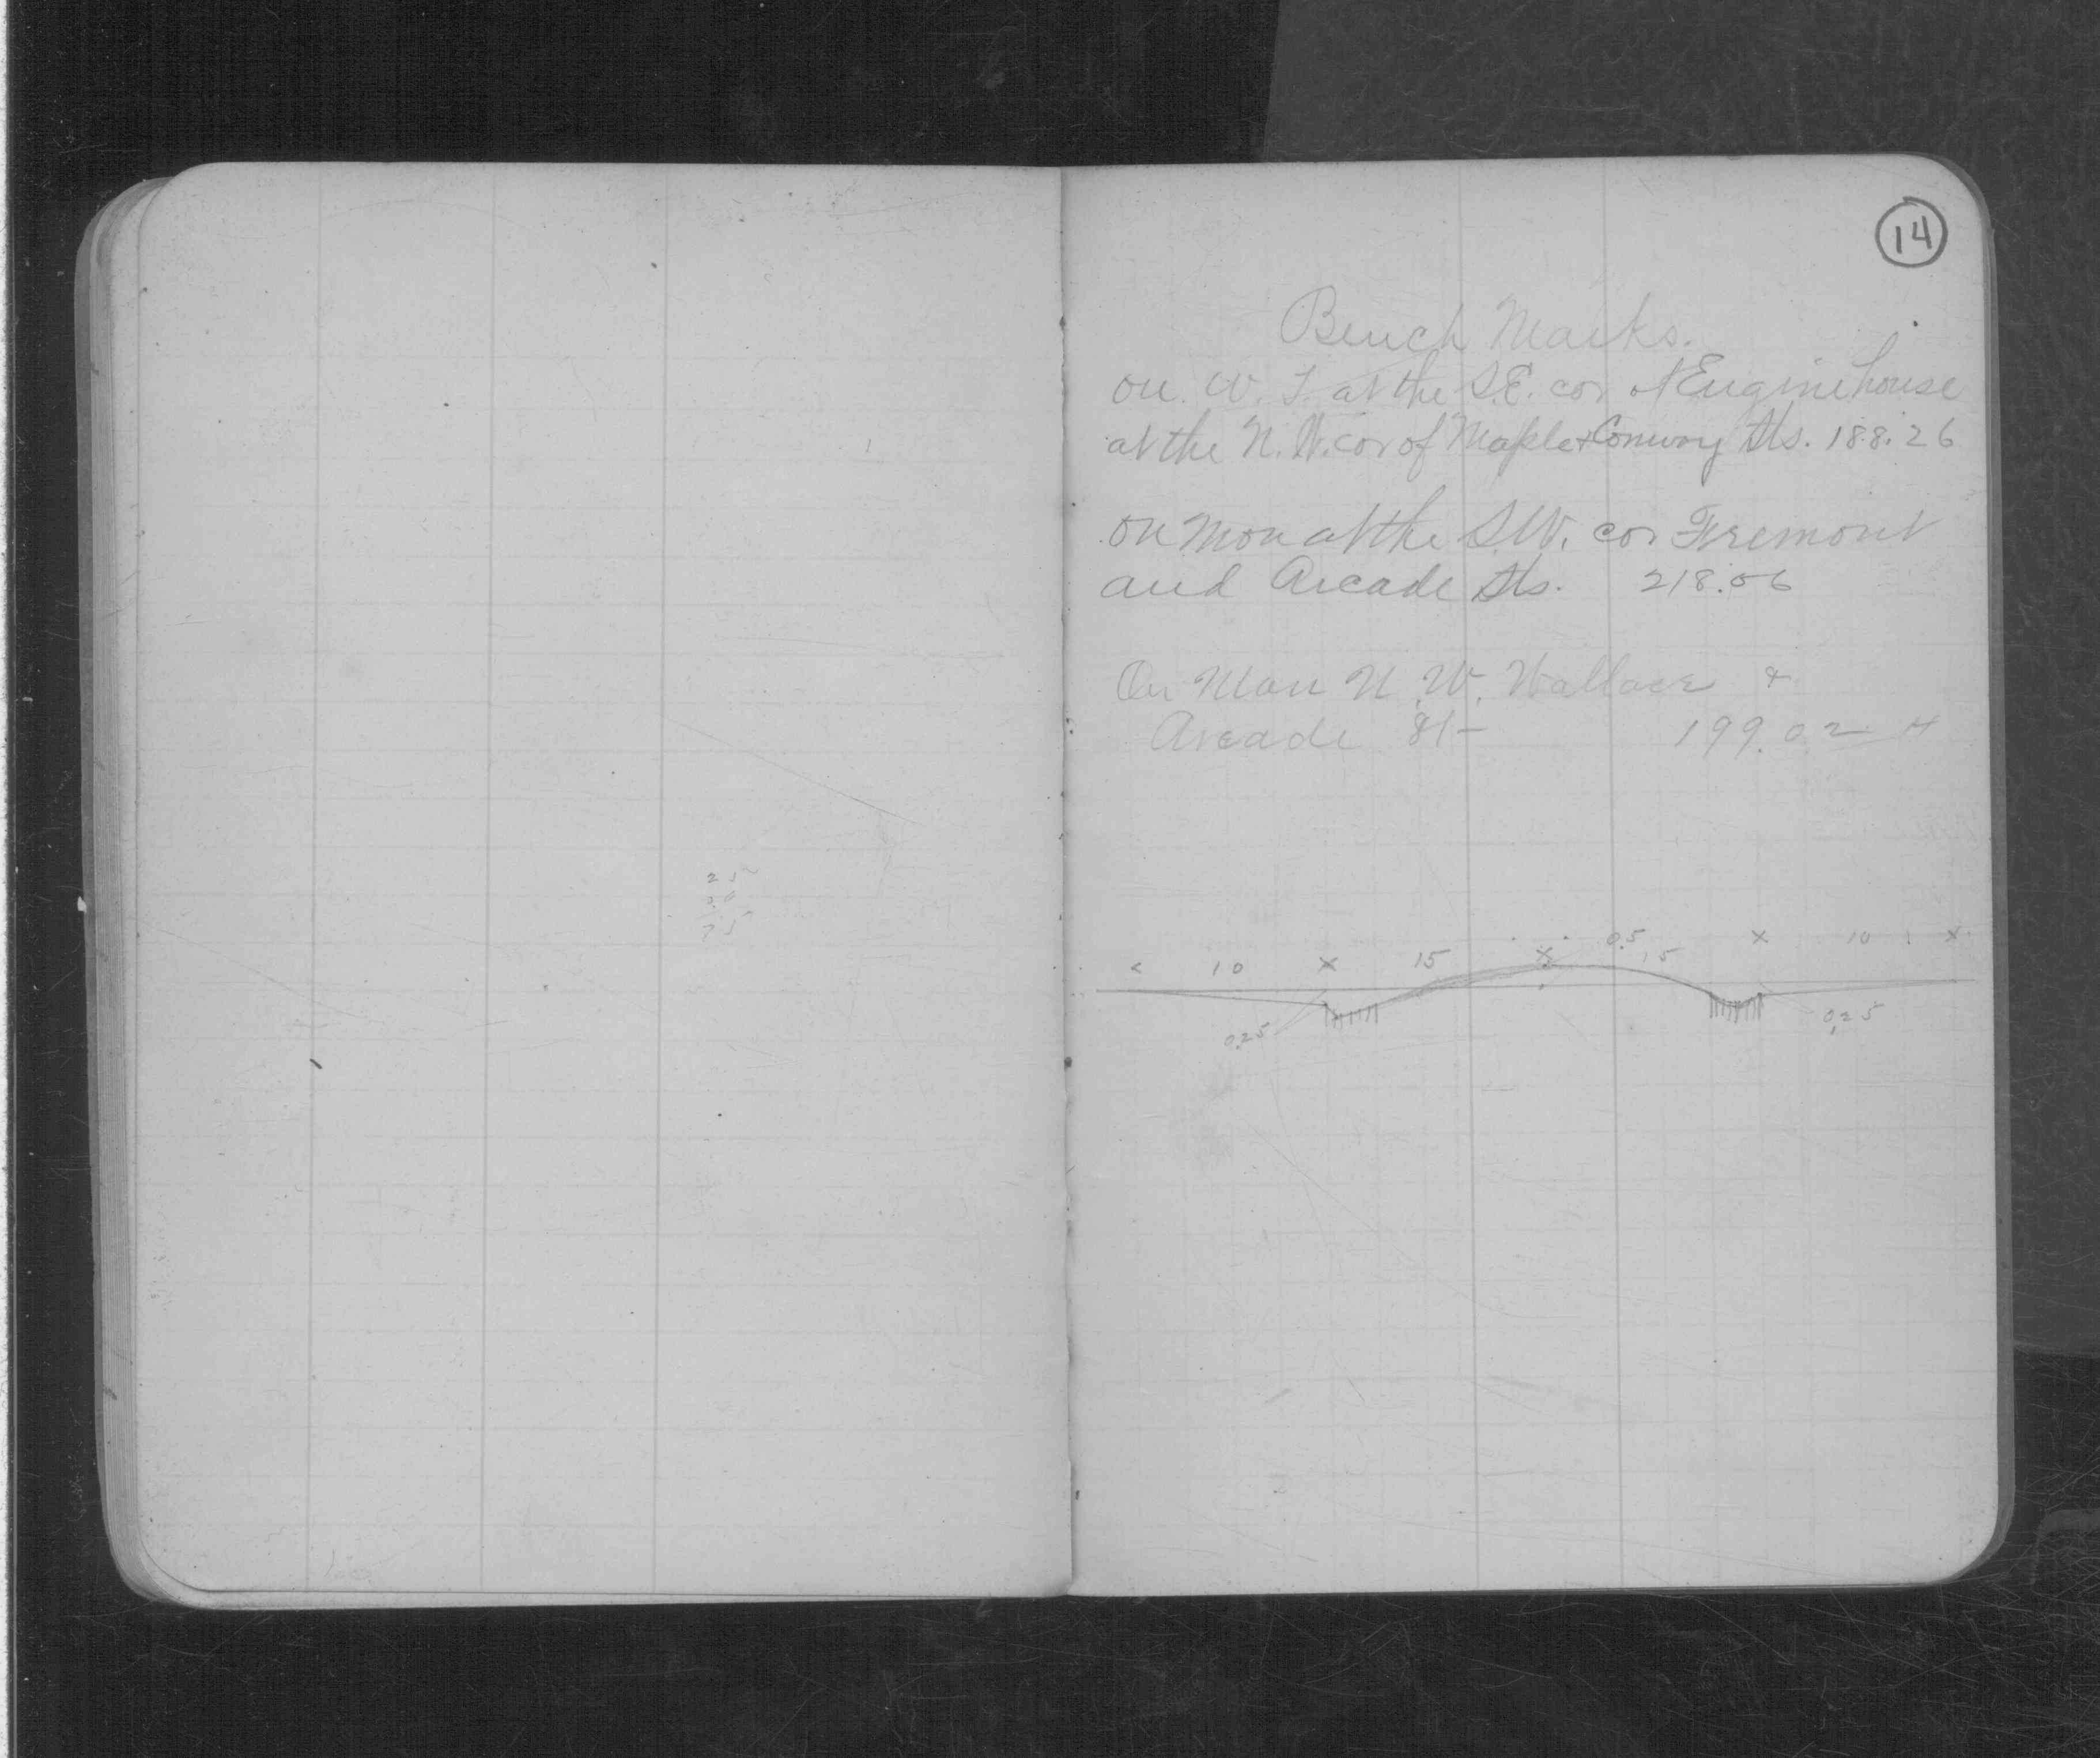 14
Bench Marks.
on W. T. at the S.E. cor of Enginehouse
at the N.W. cor of Maple & Conway Sts. 188.26
on Mon at the S.W. cor Fremont
and Arcade Sts. 218.06
On Mon N.W. Wallace &
Arcade St- 199.02
0.5
10 x 15 x 15 x 10 x
0.25 0.25